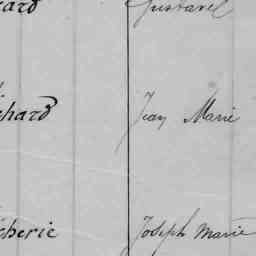 Gustavel
chard Jean Marie
cherie Joseph Marie